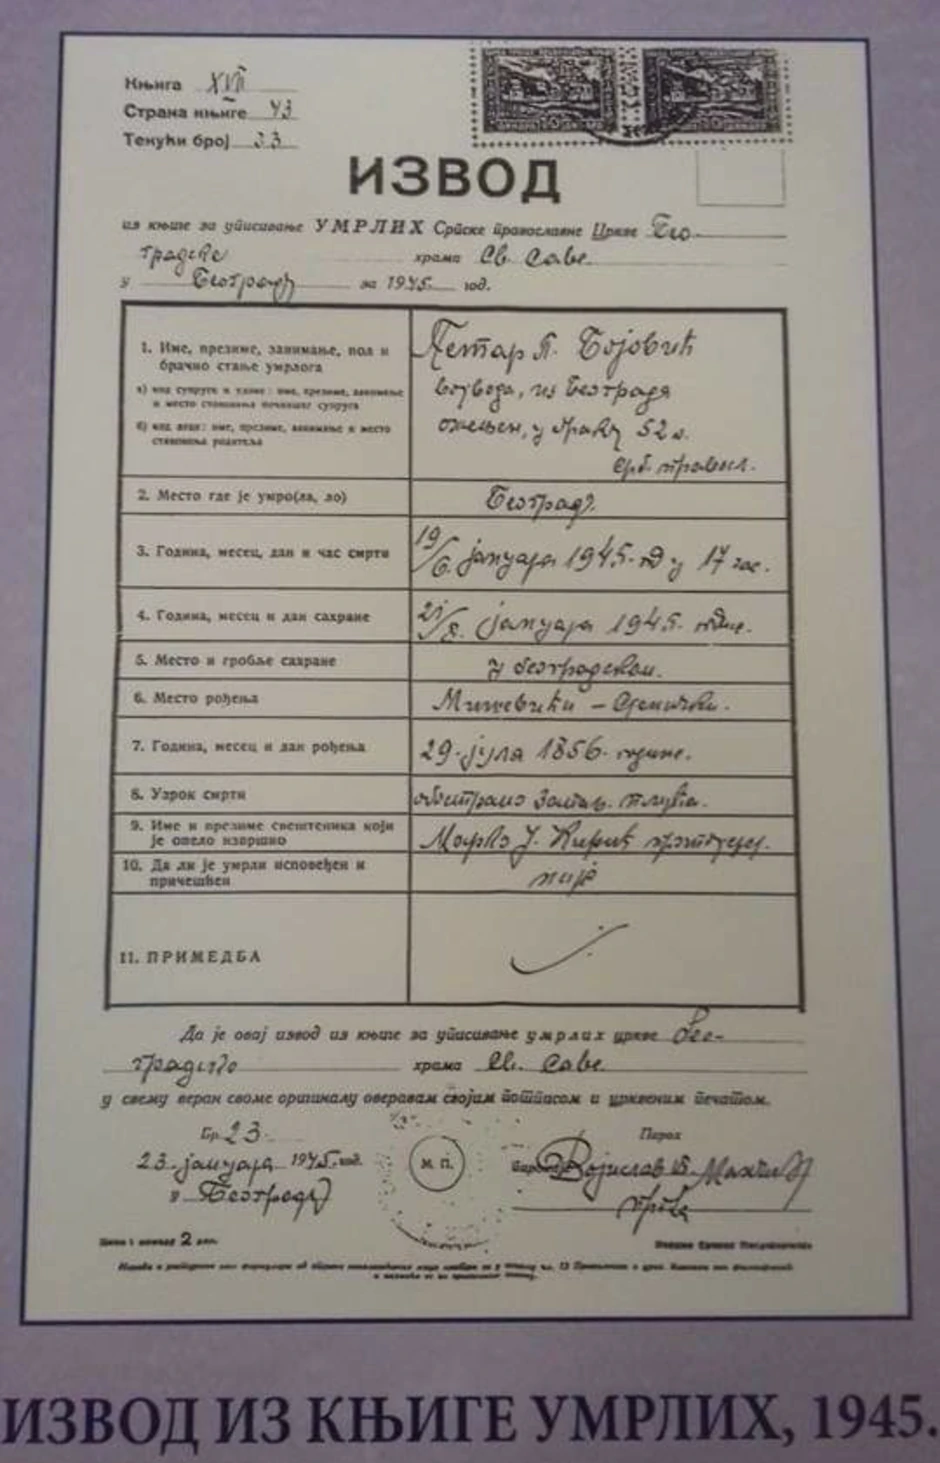 Књига XVII
Страна књиге 43
Текући број 33
ИЗВОД
из књиге за уписивање УМРЛИХ Српске православне Цркве Бео-
градске храма Св. Саве
у Београду за 1945. год.
1. Име, презиме, занимање, пол и
брачно стање умрлога
а) код супруга и удове: име, презиме, занимање
и место становања супруга
б) код деце: име, презиме, занимање и место
становања родитеља
Петар П. Бојовић
војвода, из Београда
ожењен, у браку 52 г.
срб. правосл.
2. Место где је умро(ла, ло)
Београд.
3. Година, месец, дан и час смрти
19/6. јануара 1945. год у 17 час.
4. Година, месец и дан сахране
21/8. јануара 1945. године.
5. Место и гробље сахране
у београдском.
6. Место рођења
Мишевићи –
7. Година, месец и дан рођења
29. јула 1856. године.
8. Узрок смрти
обострано запаљ. плућа.
9. Име и презиме свештеника који
је опело извршио
Марко Ј.
10. Да ли је умрли исповеђен и
причешћен
није
11. ПРИМЕДБА
Да је овај извод из књиге за уписивање умрлих цркве Бео-
градске храма Св. Саве
у свему веран своме оригиналу оверавам својим потписом и црквеним печатом.
Бр. 23.
23. јануара 1945. год.
у Београду
М. П.
Парох
Војислав
прота
2 дин.
ИЗВОД ИЗ КЊИГЕ УМРЛИХ, 1945.